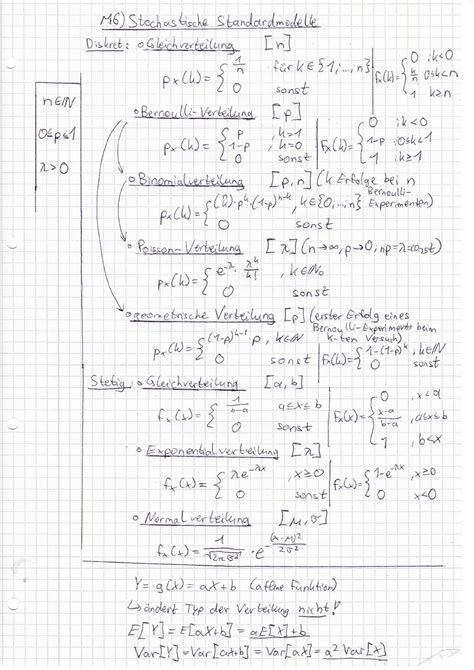 M6) Stochastische Standardmodelle
Diskret: o Gleichverteilung [n]
n∈ℕ
0≤p≤1
λ>0
pₓ(k) = { 1/n für k∈{1,...,n}
0 sonst
Fₓ(k) = { 0 , k<0
k/n 0≤k≤n
1 k≥n
o Bernoulli-Verteilung [p]
pₓ(k) = { p , k=1
1-p , k=0
0 sonst
Fₓ(k) = { 0 , k<0
1-p , 0≤k<1
1 , k≥1
o Binomialverteilung [p,n] (k Erfolge bei n
Bernoulli-
Experimenten)
pₓ(k) = { (n k)·p^k·(1-p)^(n-k) , k∈{0,...,n}
0 sonst
o Poisson-Verteilung [λ] (n→∞, p→0, np=λ=const)
pₓ(k) = { e^(-λ)·λ^k/k! , k∈ℕ₀
0 sonst
o geometrische Verteilung [p] (erster Erfolg eines
Bernoulli-Experiments beim
k-ten Versuch)
pₓ(k) = { (1-p)^(k-1)·p , k∈ℕ
0 sonst
Fₓ(k) = { 1-(1-p)^k , k∈ℕ
0 sonst
Stetig: o Gleichverteilung [a,b]
fₓ(x) = { 1/(b-a) a≤x≤b
0 sonst
Fₓ(x) = { 0 , x<a
(x-a)/(b-a) , a≤x≤b
1 , b<x
o Exponentialverteilung [λ]
fₓ(x) = { λe^(-λx) , x≥0
0 sonst
Fₓ(x) = { 1-e^(-λx) , x≥0
0 x<0
o Normalverteilung [μ,σ]
fₓ(x) = 1/√(2πσ²) · e^(-(x-μ)²/(2σ²))
Y = g(X) = aX+b (affine Funktion)
↳ ändert Typ der Verteilung nicht!
E[Y] = E[aX+b] = aE[X]+b
Var[Y] = Var[aX+b] = Var[aX] = a² Var[X]